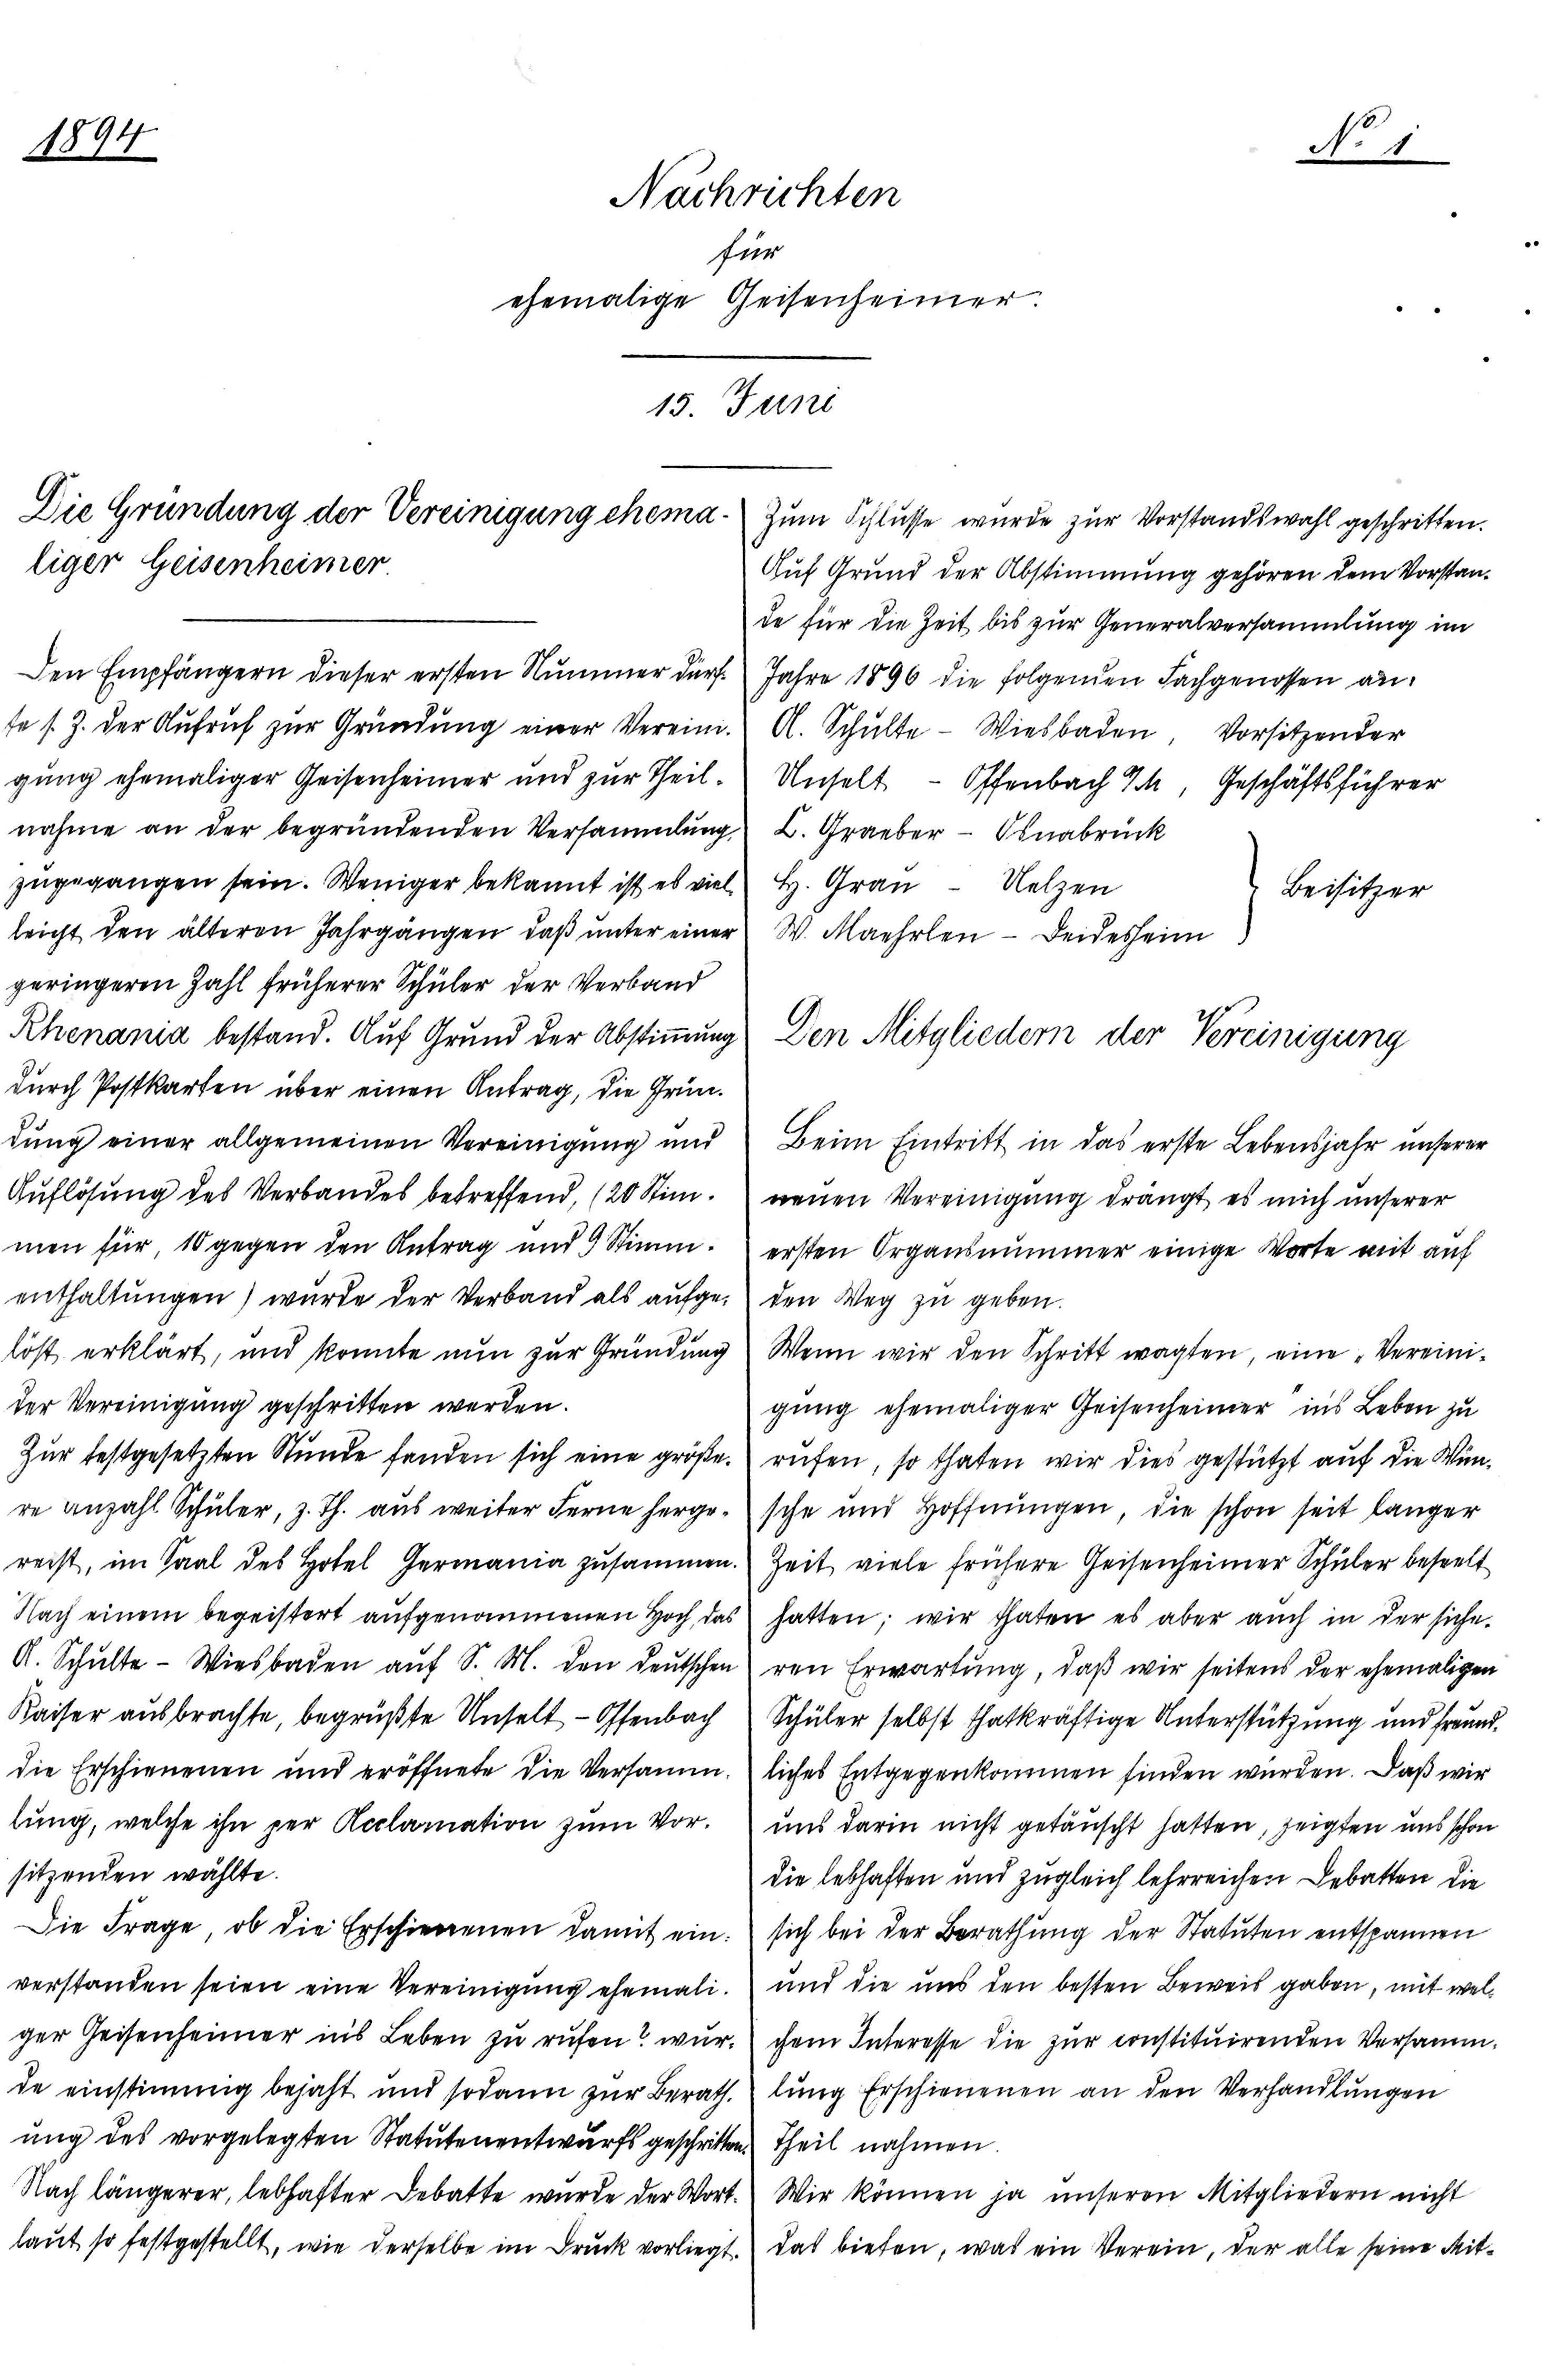 1894
No. 1
Nachrichten
für
ehemalige Geisenheimer.
15. Juni
Die Gründung der Vereinigung ehema-
liger Geisenheimer.
Den Empfängern dieser ersten Nummer dürf-
te s. Z. der Aufruf zur Gründung einer Vereini-
gung ehemaliger Geisenheimer und zur Theil-
nahme an der begründenden Versammlung
zugegangen sein. Weniger bekannt ist es viel-
leicht den älteren Jahrgängen daß unter einer
geringeren Zahl früherer Schüler der Verband
Rhenania bestand. Auf Grund der Abstim̅ung
durch Postkarten über einen Antrag, die Grün-
dung einer allgemeinen Vereinigung und
Auflösung des Verbandes betreffend, (20 Stim-
men für, 10 gegen den Antrag und 9 Stimm-
enthaltungen) wurde der Verband als aufge-
löst erklärt, und konnte nun zur Gründung
der Vereinigung geschritten werden.
Zur festgesetzten Stunde fanden sich eine größe-
re anzahl Schüler, z. Th. aus weiter Ferne herge-
reist, im Saal des Hotel Germania zusammen.
Nach einem begeistert aufgenommenen Hoch, das
A. Schulte - Wiesbaden auf S. M. den deutschen
Kaiser ausbrachte, begrüßte Unselt - Offenbach
die Erschienenen und eröffnete die Versamm-
lung, welche ihn per Acclamation zum Vor-
sitzenden wählte.
Die Frage, ob die Erschienenen damit ein-
verstanden seien eine Vereinigung ehemali-
ger Geisenheimer in's Leben zu rufen? wur-
de einstimmig bejaht und sodann zur Berath-
ung des vorgelegten Statutenentwurfs geschritten.
Nach längerer, lebhafter Debatte wurde der Wort-
laut so festgestellt, wie derselbe im Druck vorliegt.
Zum Schlusse wurde zur Vorstandswahl geschritten.
Auf Grund der Abstimmung gehören dem Vorstan-
de für die Zeit bis zur Generalversammlung im
Jahre 1896 die folgenden Fachgenossen an:
A. Schulte - Wiesbaden, Vorsitzender
Unselt - Offenbach a/M, Geschäftsführer
L. Graeber - Osnabrück
H. Grau - Uelzen
Beisitzer
W. Maehrlen - Deidesheim
Den Mitgliedern der Vereinigung
Beim Eintritt in das erste Lebensjahr unserer
neuen Vereinigung drängt es mich unserer
ersten Organsnummer einige Worte mit auf
den Weg zu geben.
Wenn wir den Schritt wagten, eine „Vereini-
gung ehemaliger Geisenheimer" in's Leben zu
rufen, so thaten wir dies gestützt auf die Wün-
sche und Hoffnungen, die schon seit langer
Zeit viele frühere Geisenheimer Schüler beseelt
hatten; wir thaten es aber auch in der siche-
ren Erwartung, daß wir seitens der ehemaligen
Schüler selbst thatkräftige Unterstützung und freund-
liches Entgegenkommen finden würden. Daß wir
uns darin nicht getäuscht hatten, zeigten uns schon
die lebhaften und zugleich lehrreichen Debatten die
sich bei der Berathung der Statuten entspannen
und die uns den besten Beweis gaben, mit wel-
chem Interesse die zur constituirenden Versamm-
lung Erschienenen an den Verhandlungen
Theil nahmen.
Wir können ja unseren Mitgliedern nicht
das bieten, was ein Verein, der alle seine Mit-